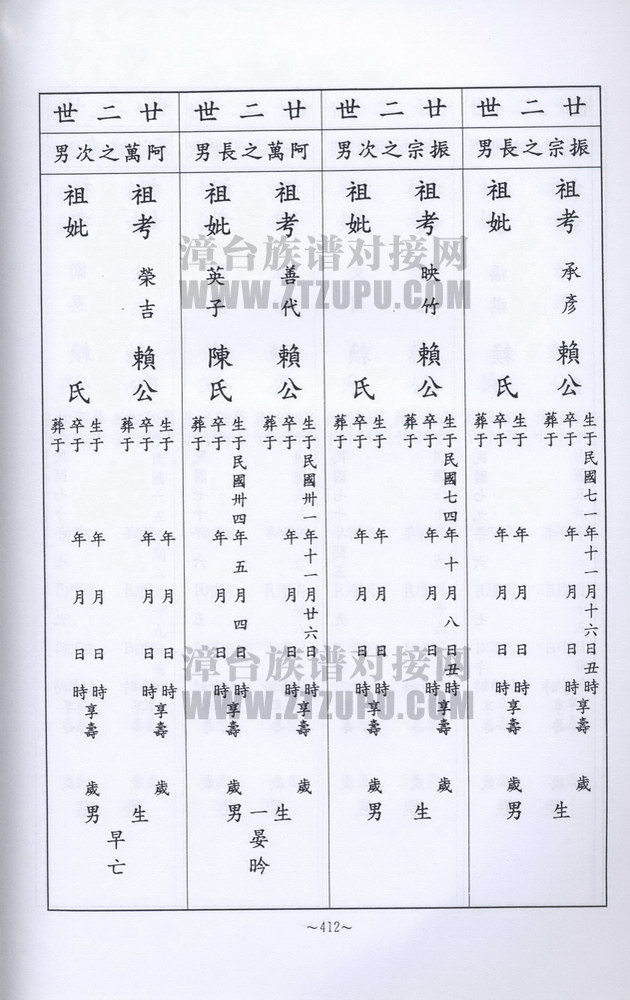 廿二世
振宗之長男
祖考 承彥 賴公
生于民國七一年十一月十六日丑時
卒于 年 月 日 時享壽 歲
葬于
祖妣 氏
生于 年 月 日 時
卒于 年 月 日 時享壽 歲
葬于
生 男
廿二世
振宗之次男
祖考 映竹 賴公
生于民國七四年十月八日丑時
卒于 年 月 日 時享壽 歲
葬于
祖妣 氏
生于 年 月 日 時
卒于 年 月 日 時享壽 歲
葬于
生 男
廿二世
阿萬之長男
祖考 善代 賴公
生于民國卅一年十一月廿六日 時
卒于 年 月 日 時享壽 歲
葬于
祖妣 英子 陳氏
生于民國卅四年五月四日 時
卒于 年 月 日 時享壽 歲
葬于
生一男
晏昑
廿二世
阿萬之次男
祖考 榮吉 賴公
生于 年 月 日 時
卒于 年 月 日 時享壽 歲
葬于
祖妣 氏
生于 年 月 日 時
卒于 年 月 日 時享壽 歲
葬于
生 男
早亡
～412～
漳台族谱对接网
WWW.ZTZUPU.COM
漳台族谱对接网
WWW.ZTZUPU.COM